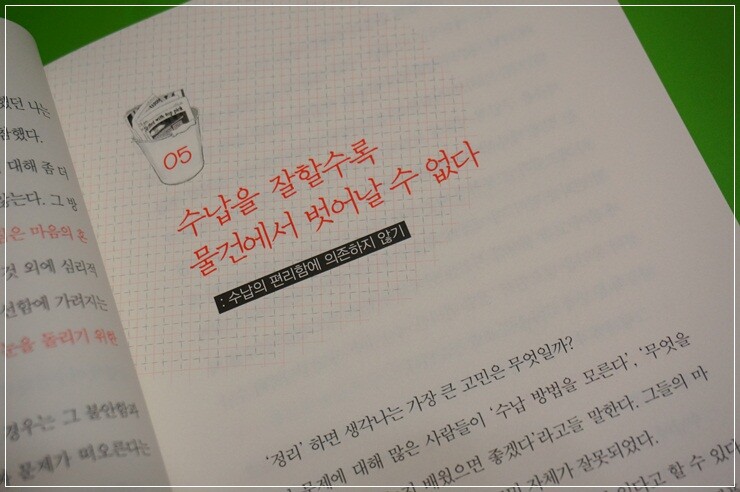 했던 나는
함했다.
대해 좀 더
않는다. 그 방
은 마음의 혼
것 외에 심리적
선함에 가려지는
눈을 돌리기 위한
경우는 그 불안함과
문제가 떠오른다는
05
수납을 잘할수록
물건에서 벗어날 수 없다
: 수납의 편리함에 의존하지 않기
'정리' 하면 생각나는 가장 큰 고민은 무엇일까?
문제에 대해 많은 사람들이 '수납 방법을 모른다', '무엇을
배웠으면 좋겠다'라고들 말한다. 그들의 마
자체가 잘못되었다.
있다고 할 수 있다